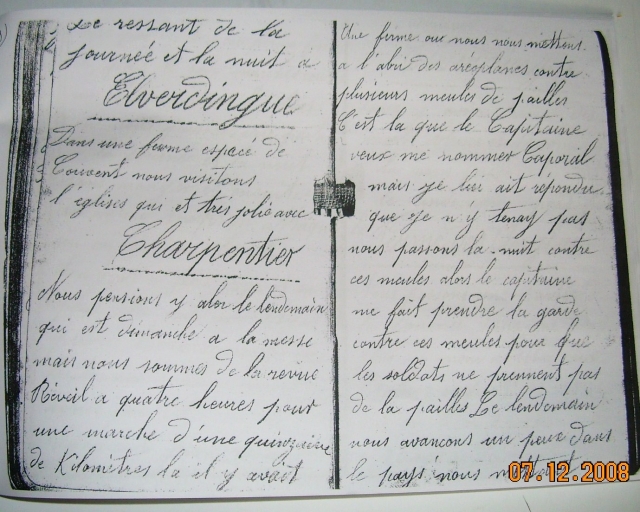 Le ressant de la
journeé et la nuit a
Elverdingue
Dans une ferme espacé de
Couvent nous visitons
l'églises qui et tres jolie avec
Charpentier
Nous pensions y aler le lendemain
qui est dimanche a la messe
mais nous sommes de la revue
Réveil a quatre heures pour
une marche d'une quinzaine
de Kilomètres la il y avait
Une ferme ou nous nous mettons
a l'abri des aréoplanes contre
plusieurs meules de pailles
C'est la que le Capitaine
veux me nommer Caporal
mais je lui ait répondu
que je n'y tenay pas
nous passons la nuit contre
ces meules alors le capitaine
me fait prendre la garde
contre ces meules pour que
les soldats ne prennent pas
de la pailles Le lendemain
nous avancons un peux dans
le pays nous
07.12.2008